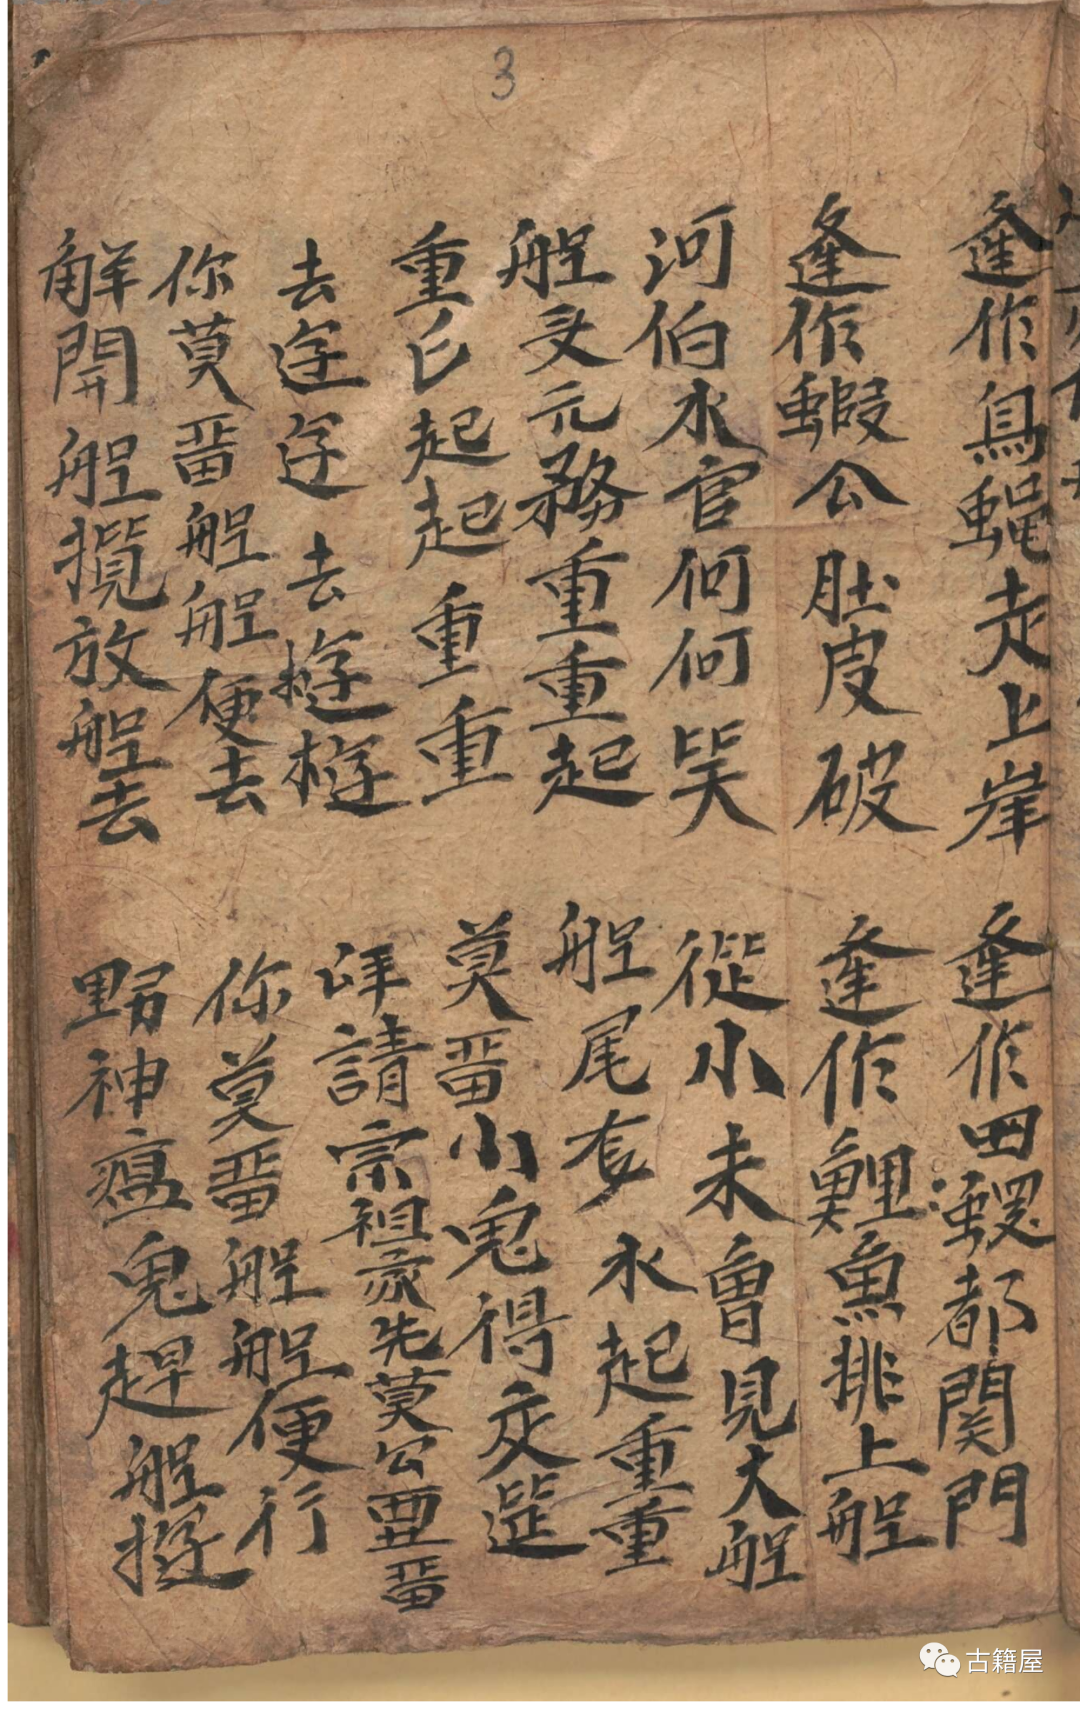 3
逢作烏蝇走上岸 逢作田螺都関門
逢作蝦公肚皮破 逢作鯉魚排上船
河伯水官何何笑 從小未曾見大船
船頭元務重重起 船尾有水起重重
重起起重重 莫番小鬼得交
去去 請宗祖家先莫公番
你莫番船船便去 你莫番船船便行
解開船攬放船去 野神瘟鬼趕船
古籍屋